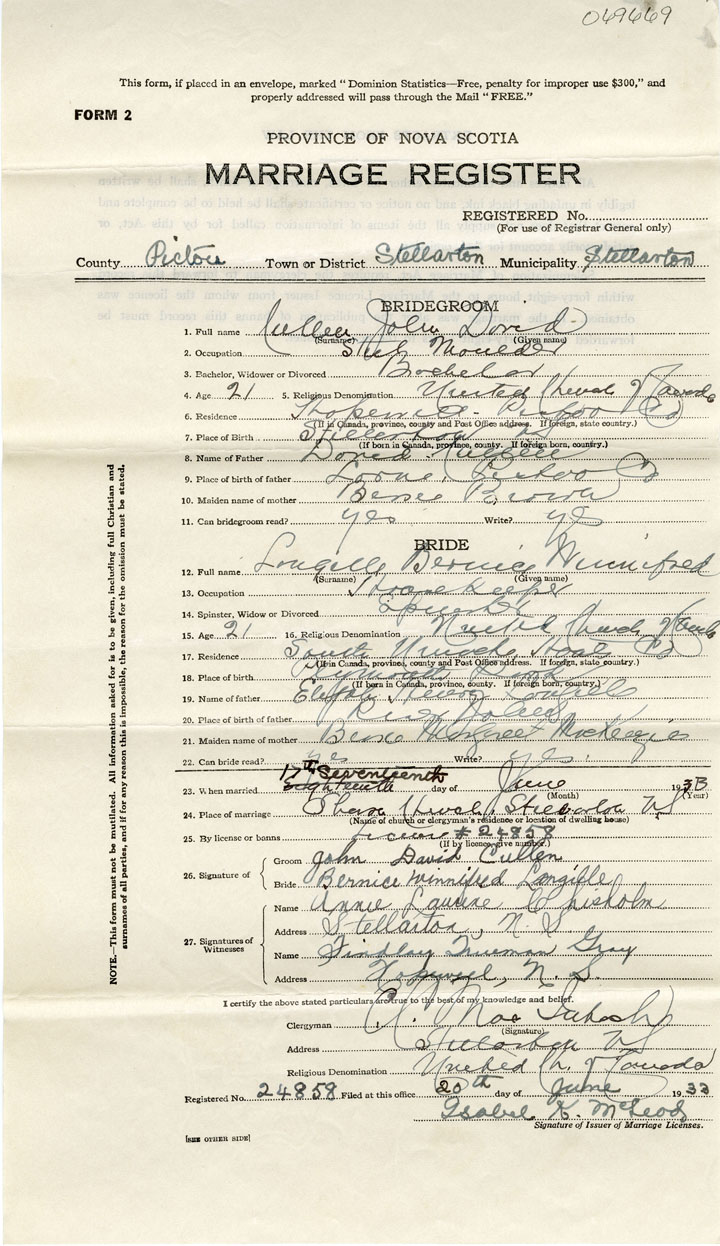 049669
This form, if placed in an envelope, marked "Dominion Statistics—Free, penalty for improper use $300," and
properly addressed will pass through the Mail "FREE."
FORM 2
PROVINCE OF NOVA SCOTIA
MARRIAGE REGISTER
REGISTERED No.
(For use of Registrar General only)
County Pictou Town or District Stellarton Municipality Stellarton
BRIDEGROOM
1. Full name Cullen John David
(Surname) (Given name)
2. Occupation Moulder
3. Bachelor, Widower or Divorced Bachelor
4. Age 21 5. Religious Denomination United Church of Canada
6. Residence Hopewell - Pictou Co
(If in Canada, province, county and Post Office address. If foreign, state country.)
7. Place of Birth Stellarton
(If born in Canada, province, county. If foreign born, country.)
8. Name of Father David Cullen
9. Place of birth of father Lorne, Pictou Co
10. Maiden name of mother Bessie Brown
11. Can bridegroom read? yes Write? yes
BRIDE
12. Full name Langille Bernice Winnifred
(Surname) (Given name)
13. Occupation Housekeeper
14. Spinster, Widow or Divorced Spinster
15. Age 21 16. Religious Denomination United Church of Canada
17. Residence South
(If in Canada, province, county and Post Office address. If foreign, state country.)
18. Place of birth
(If born in Canada, province, county. If foreign born, country.)
19. Name of father Langille
20. Place of birth of father
21. Maiden name of mother Bessie Margaret MacKenzie
22. Can bride read? yes Write? yes.
17th Seventeenth
23. When married Eighteenth day of June 193
(Month) (Year)
24. Place of marriage Sharon Church, Stellarton NS
(Name of church or clergyman's residence or location of dwelling house)
25. By license or banns License # 24858
(If by licence give number.)
26. Signature of Groom John David Cullen
Bride Bernice Winnifred Langille
27. Signatures of Witnesses Name Annie Laurine Chisholm
Address Stellarton, N. S.
Name Findlay Truman Gray
Address Hopewell, N. S.
I certify the above stated particulars are true to the best of my knowledge and belief.
Clergyman MacIntosh
(Signature)
Address Stellarton NS
Religious Denomination United Ch. of Canada
Registered No. 24858 Filed at this office 20th day of June 1933
Isabel K. McLeod
Signature of Issuer of Marriage Licenses.
[SEE OTHER SIDE]
NOTE.—This form must not be mutilated. All information asked for is to be given, including full Christian and
surnames of all parties, and if for any reason this is impossible, the reason for the omission must be stated.